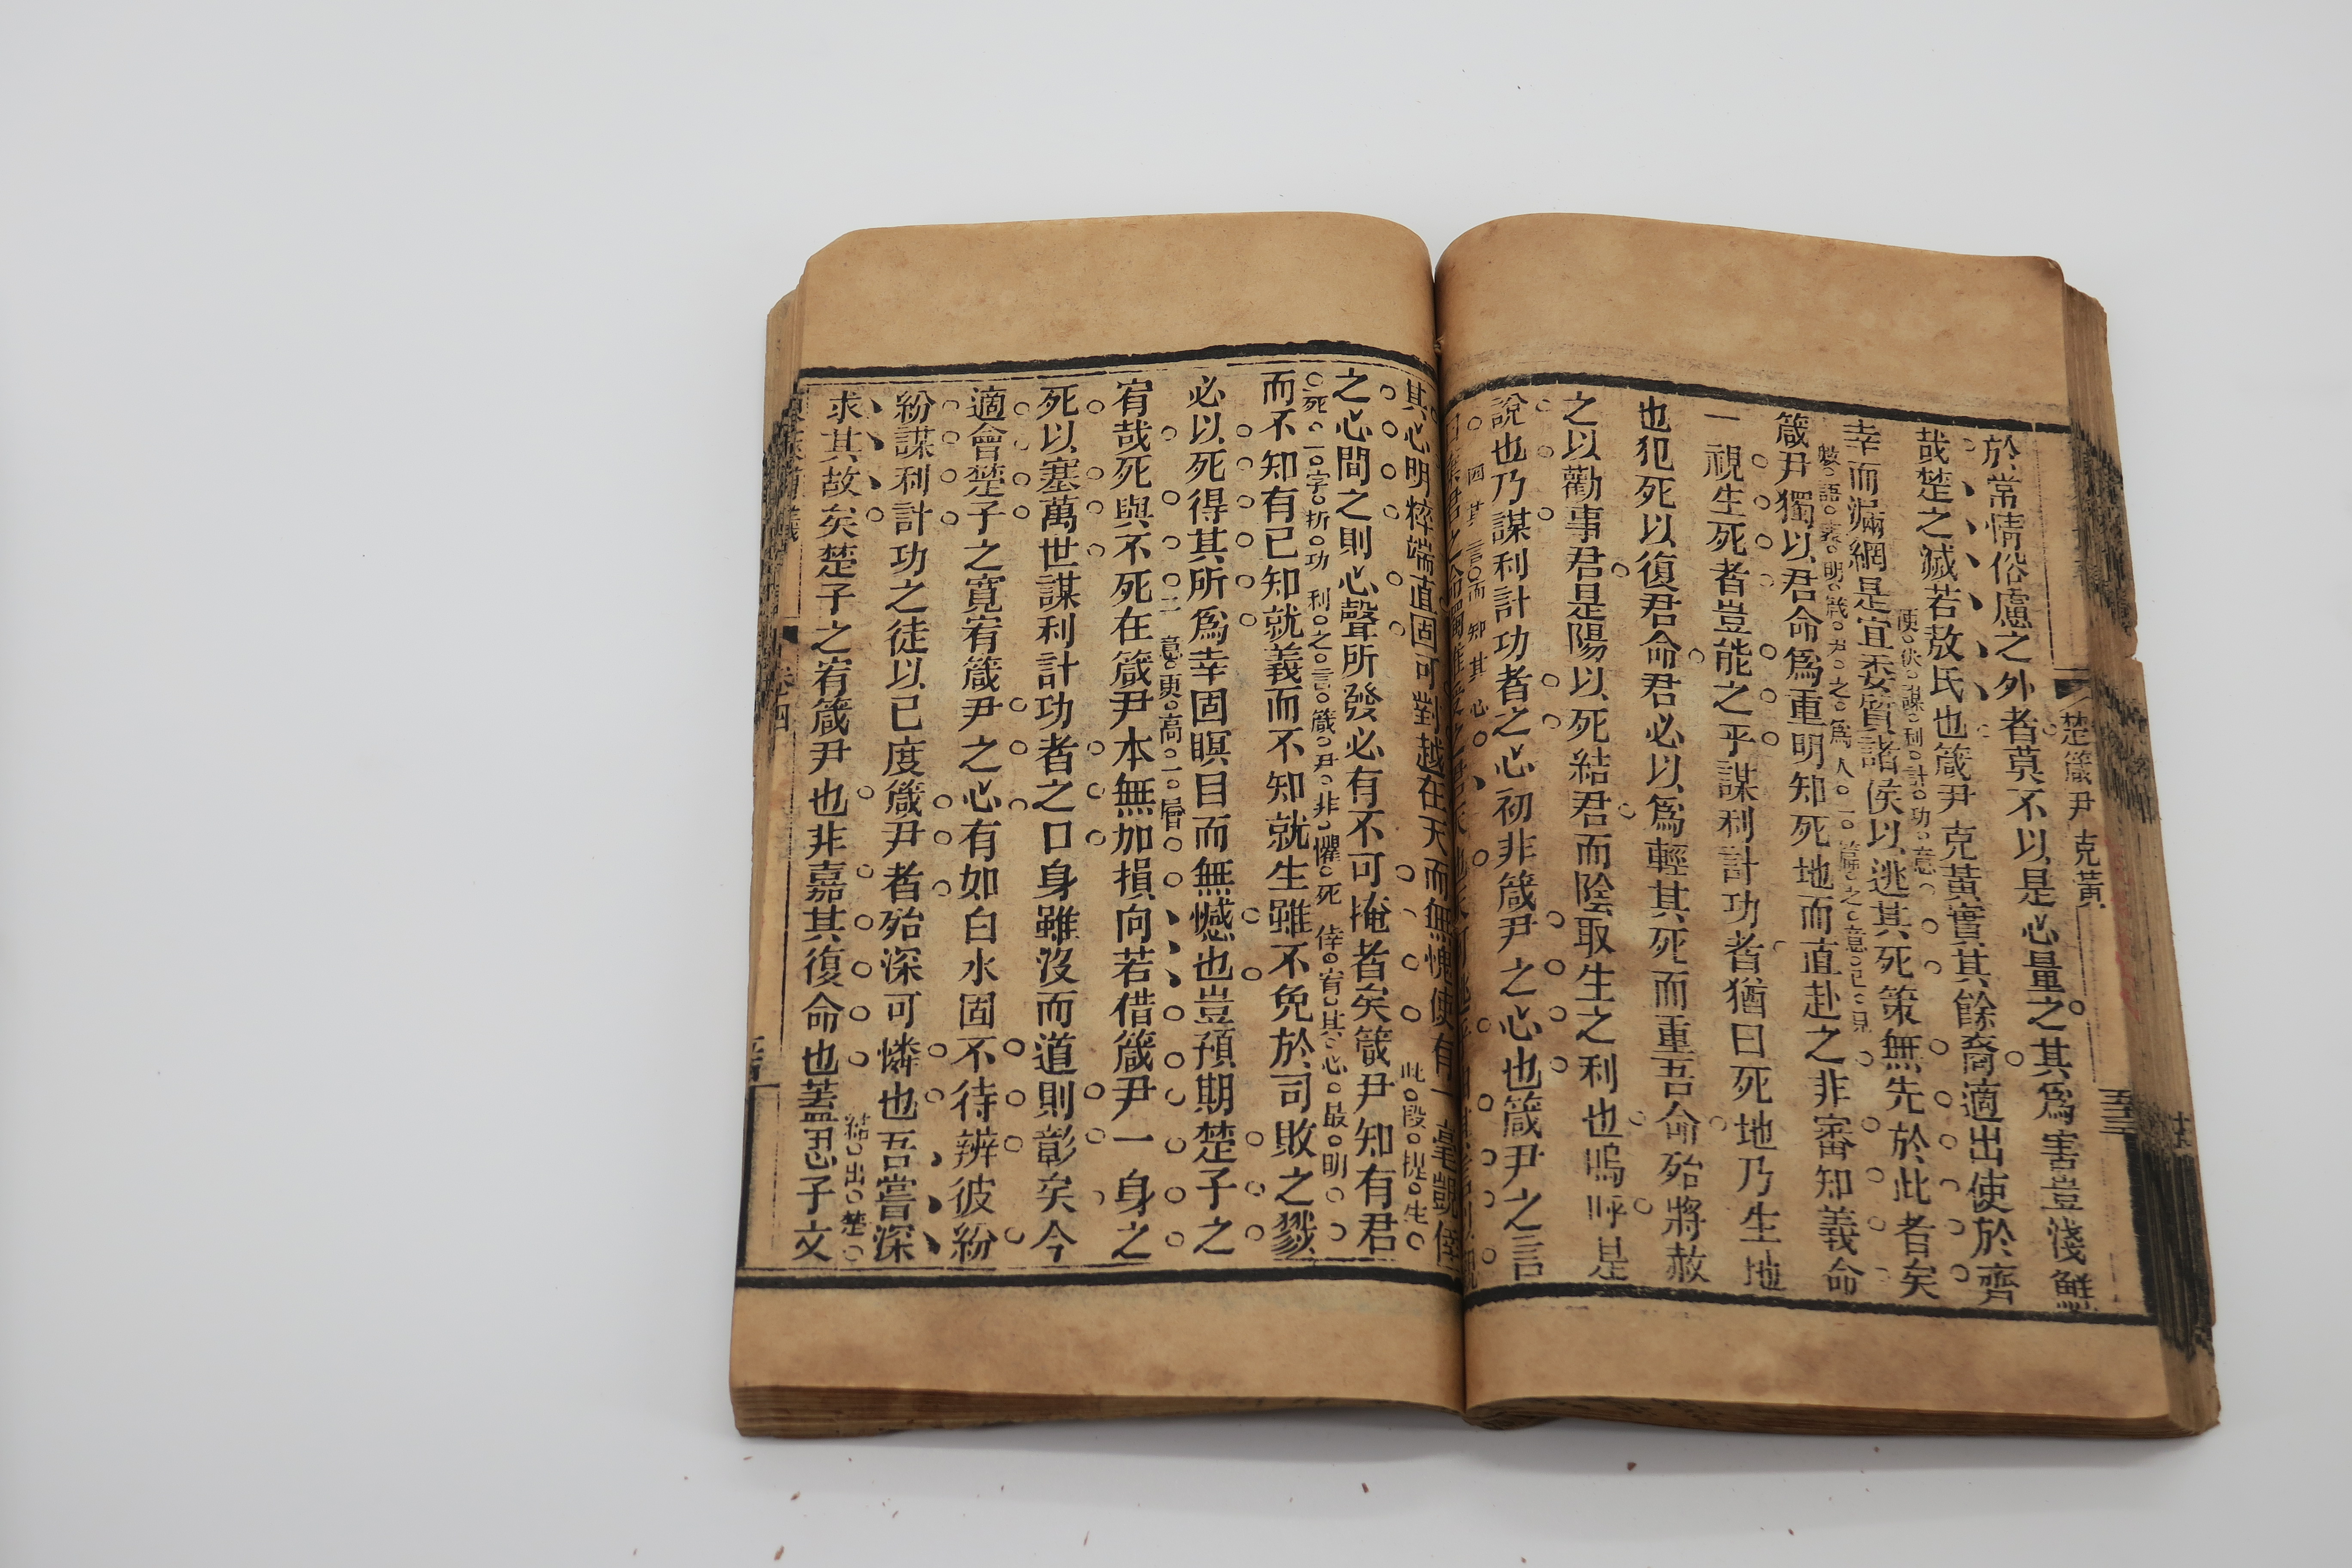 楚箴尹克黃
五十三
於常情俗慮之外者莫不以是心量之其爲害豈淺鮮
哉楚之滅若敖氏也箴尹克黃實其餘裔適出使於齊
便伏謀利計功意
幸而漏網是宜委質諸侯以逃其死策無先於此者矣
數語表明箴尹之爲人一篇之意已見
箴尹獨以君命爲重明知死地而直赴之非審知義命
一視生死者豈能之乎謀利計功者猶曰死地乃生地
也犯死以復君命君必以爲輕其死而重吾命殆將赦
之以勸事君是陽以死結君而陰取生之利也嗚呼是
說也乃謀利計功者之心初非箴尹之心也箴尹之言
因其言而知其心
其心明粹端直固可對越在天而無愧使有一毫覬倖
此段提生
之心間之則心聲所發必有不可掩者矣箴尹知有君
死一字折功利之言箴尹非懼死倖宥其心最明
而不知有已知就義而不知就生雖不免於司敗之戮
必以死得其所爲幸固瞑目而無憾也豈預期楚子之
宥哉死與不死在箴尹本無加損向若借箴尹一身之
二意更高一層
死以塞萬世謀利計功者之口身雖沒而道則彰矣今
適會楚子之寬宥箴尹之心有如白水固不待辨彼紛
紛謀利計功之徒以已度箴尹者殆深可憐也吾嘗深
結出楚
求其故矣楚子之宥箴尹也非嘉其復命也蓋思子文
卷四